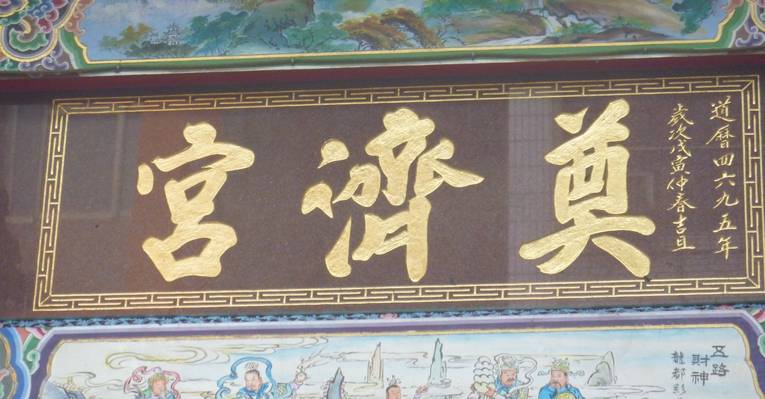 道曆四六九五年
歲次戊寅仲春吉旦
奠濟宮
五路
財神
龍都彩